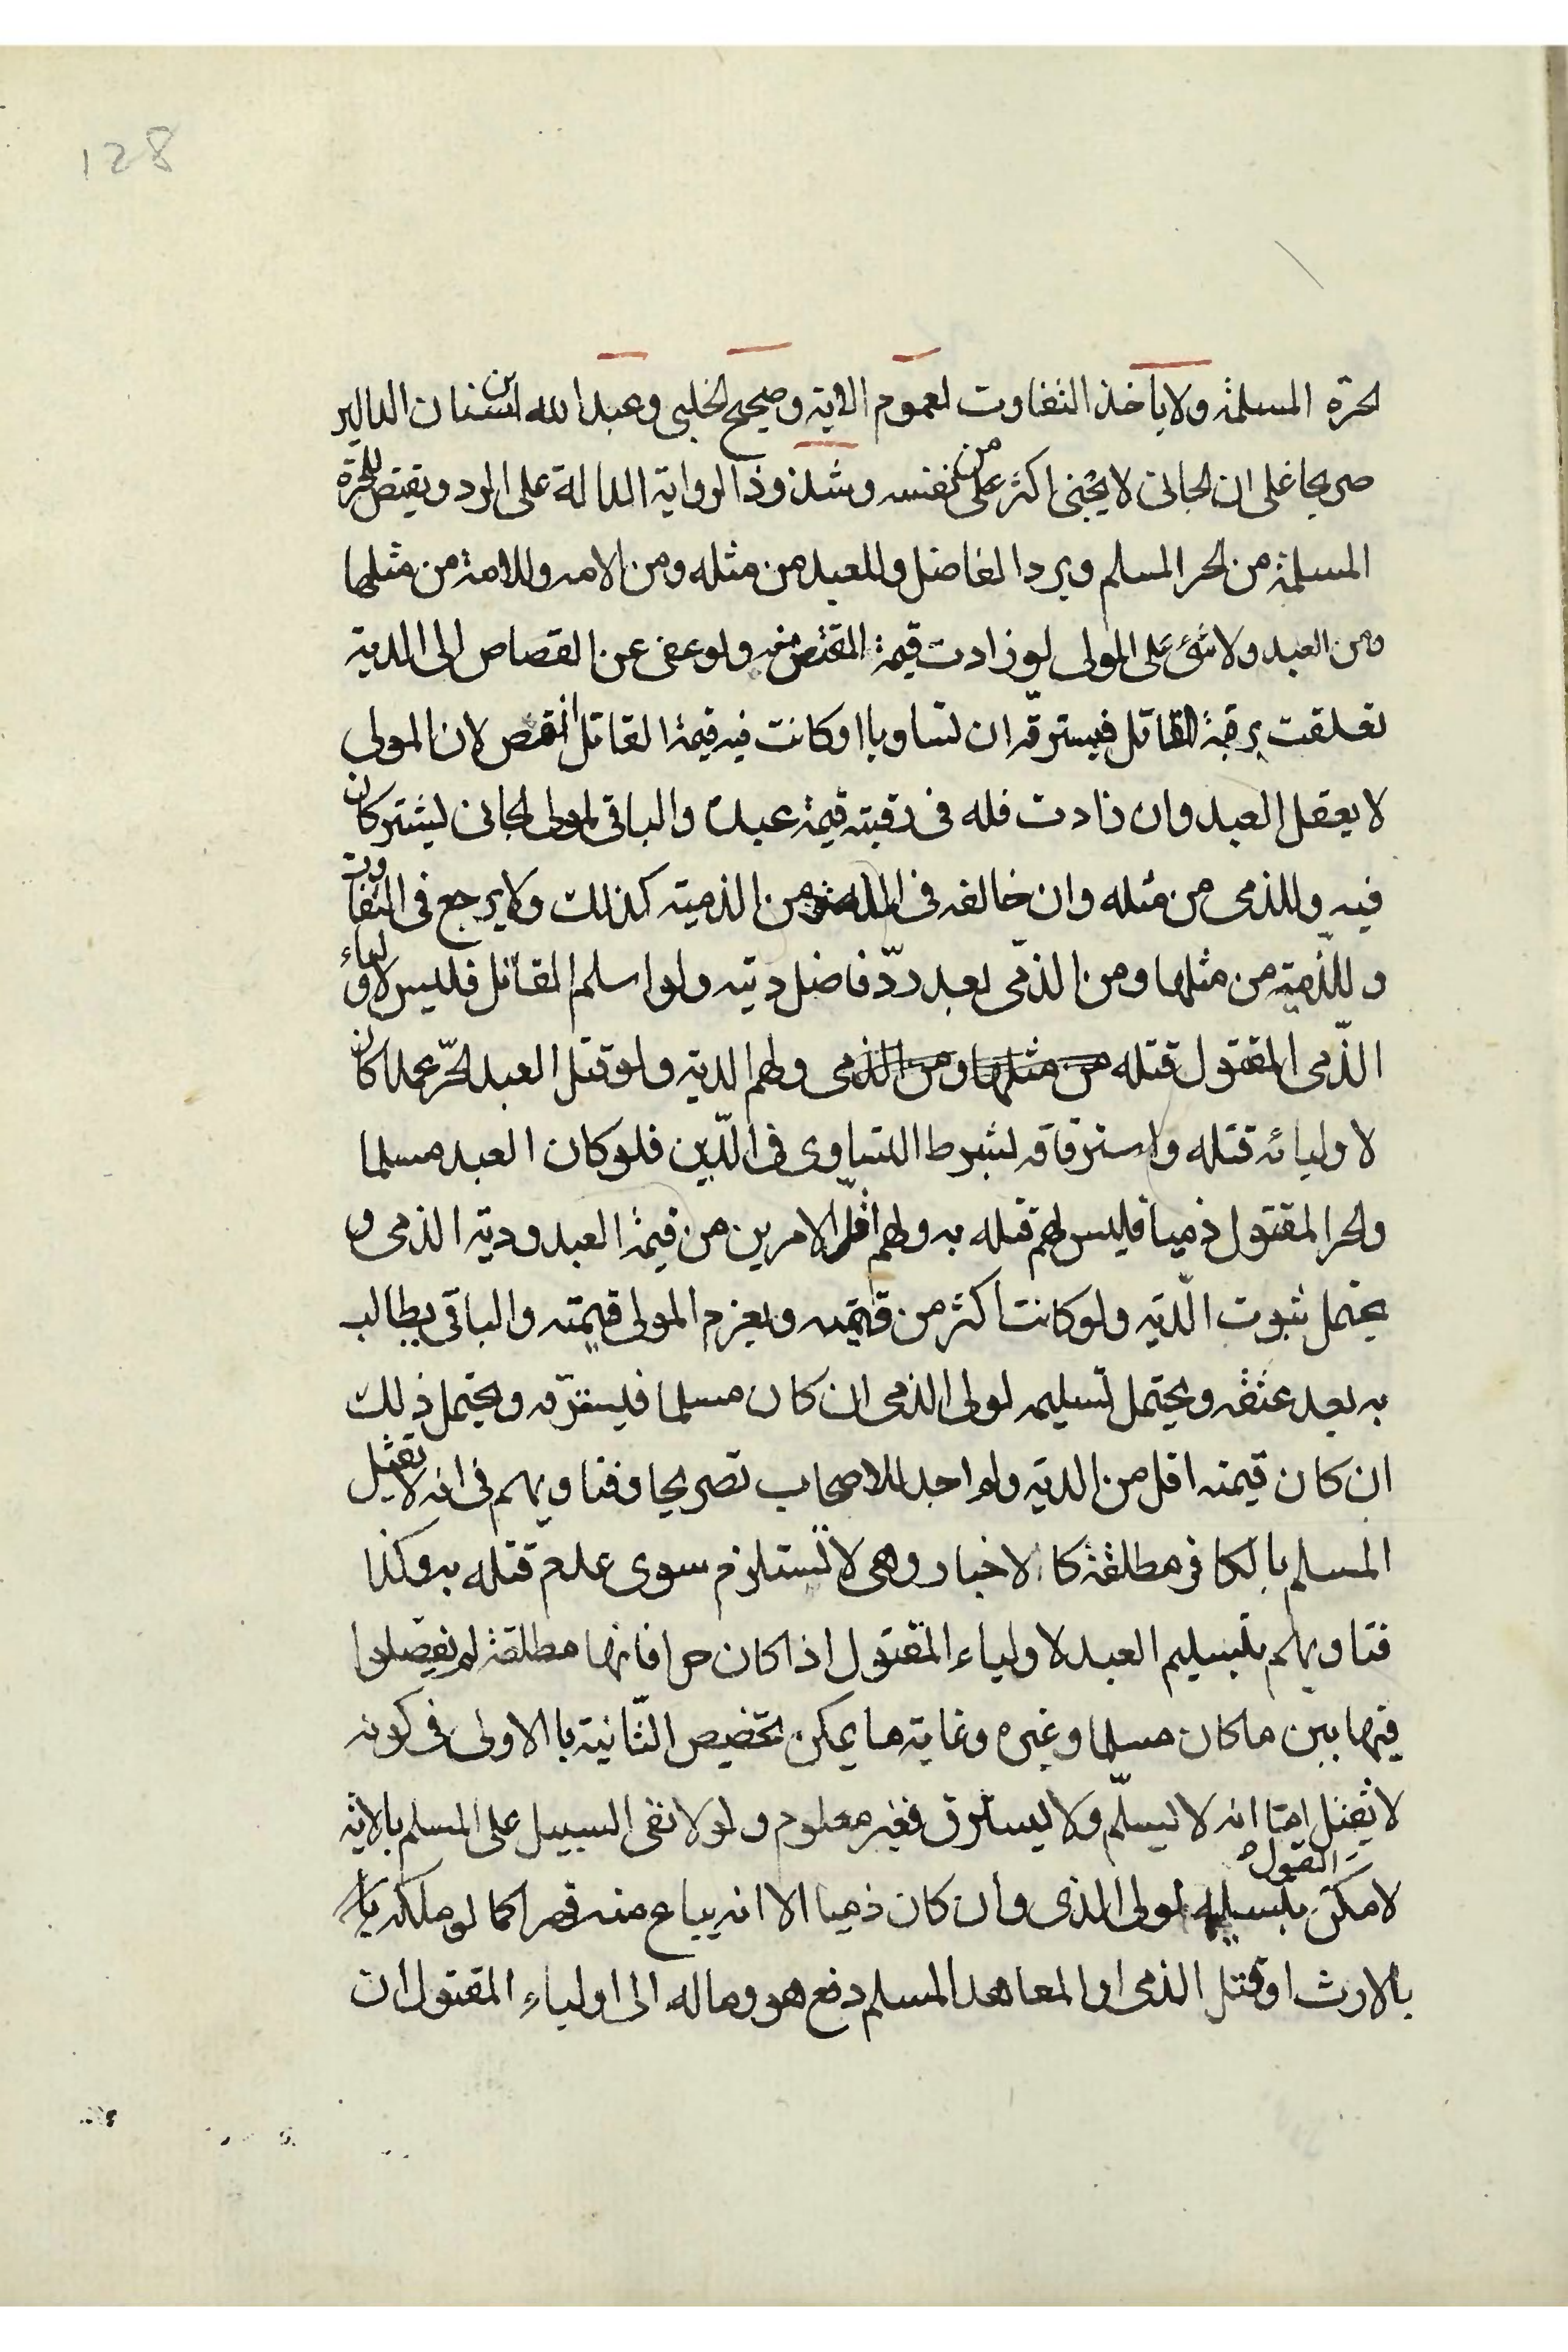 128
الحرة المسلمة ولا يأخذ التفاوت لعموم الاية وصحيح الحلبي وعبد الله ابن سنان الدالين
صريحا على ان الجاني لا يجني اكثر من على نفسه وشذوذ الرواية الدالة على الرد ويقتص للحرة
المسلمة من الحر المسلم ويرد الفاضل وللعبد من مثله ومن الامه وللامة من مثلها
ومن العبد ولا شئ على المولى لو زادت قيمة المقتص منه ولو عفى عن القصاص الى الدية
تعلقت برقبة القاتل فيسترقه ان تساويا او كانت فيه قيمة القاتل انقص لان المولى
لا يعقل العبد وان زادت فله فى رقبته قيمة عبده والباقى لمولى الجانى ليشتركان
فيه وللذمى من مثله وان خالفه فى الملة ومن الذمية كذلك ولا يرجع فى التفاوت
وللذمية من مثلها ومن الذمى بعد ردّ فاضل ديته ولو اسلم القاتل فليس لاولياء
الذمى المقتول قتله من مثلها ومن الذمى ولهم الدية ولو قتل العبد الحرّ عمدا كان
لاوليائه قتله واسترقاقه بشرط التساوى فى الدّين فلو كان العبد مسلما
والحر المقتول ذميا فليس لهم قتله به ولهم اقلّ الامرين من قيمة العبد ودية الذمى و
يحتمل ثبوت الدّية ولو كانت اكثر من قيمته ويغرم المولى قيمته والباقى يطالب
به بعد عتقه ويحتمل تسليمه لولى الذمى ان كان مسلما فليسترقه ويحتمل ذلك
ان كان قيمته اقل من الدية ولم اجد للاصحاب تصريحا وفتاويهم فى انه لا يقتل
المسلم بالكافر مطلقة كالاخبار وهى لا تستلزم سوى عدم قتله به وكذا
فتاويهم بتسليم العبد لاولياء المقتول اذا كان حرا فانها مطلقة لم يفصلوا
فيها بين ما كان مسلما وغيره وغاية ما يمكن تخصيص الثانية بالاولى فى كونه
لا يقتل امّا انه لا يسلّم ولا يسترق فغير معلوم ولو لا نفى السبيل على المسلم بالاية
لامكن القول بتسليمه لولى الذى وان كان ذميا الا انه يباع منه قهرا كما لو ملكه
بالارث او قتل الذمى او المعاهد المسلم دفع هو وماله الى اولياء المقتول ان